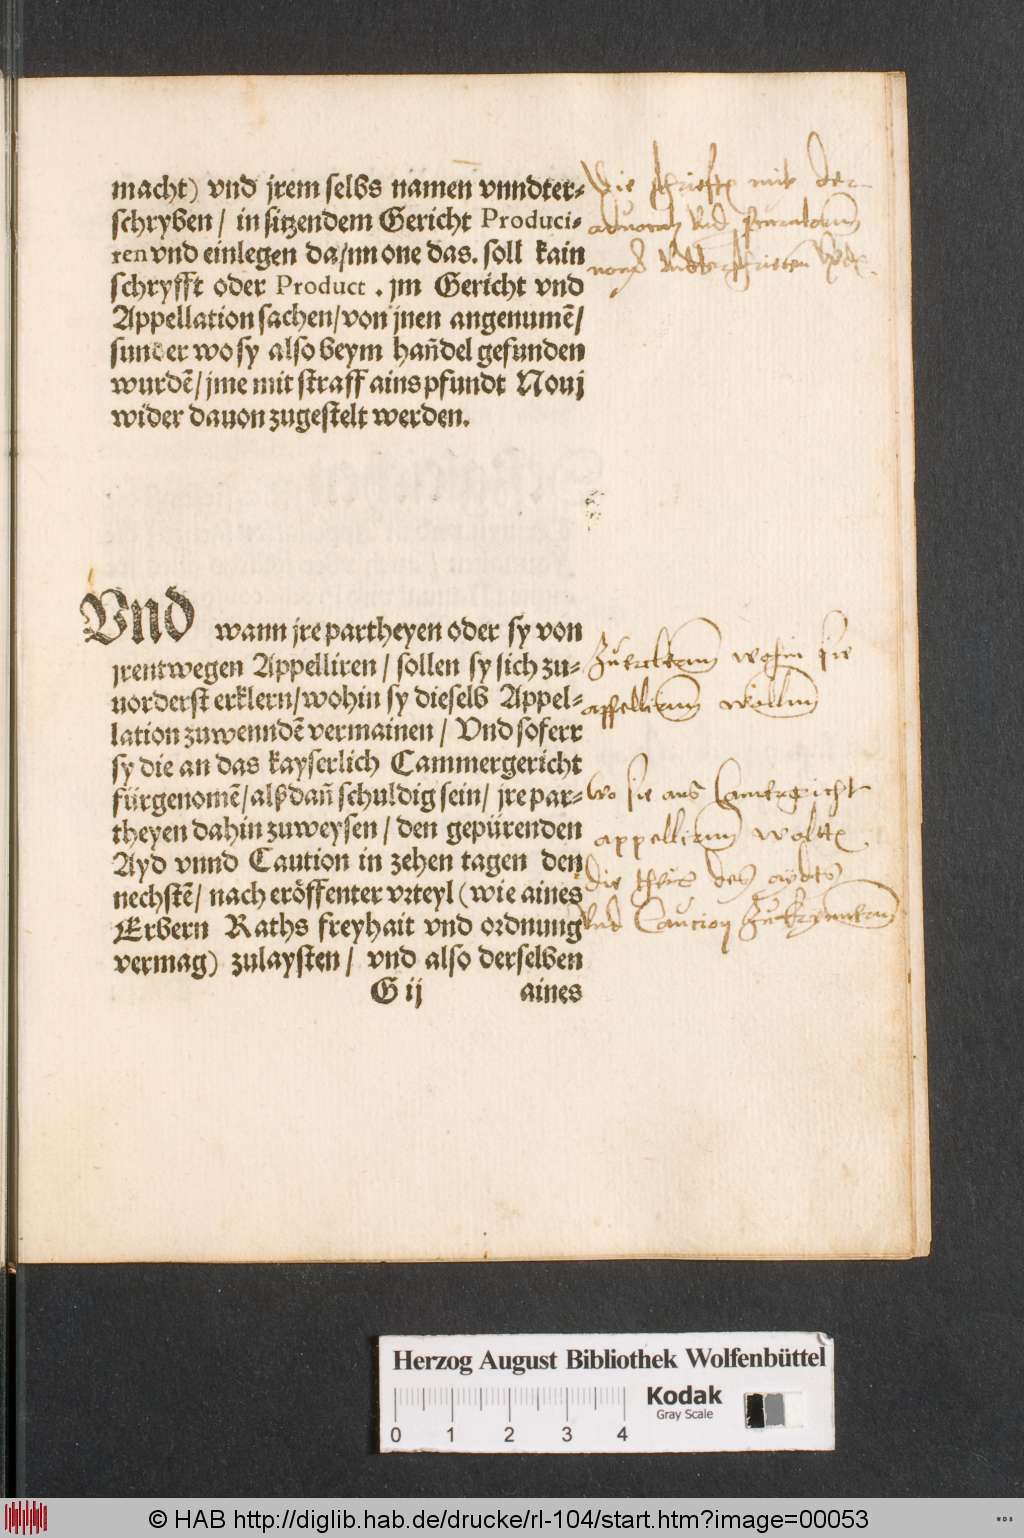 macht) vnd jrem selbs namen vnndter-
schryben / in sitzendem Gericht Produci-
ren vnd einlegen da/nn one das. soll kain
schryfft oder Product . jm Gericht vnd
Appellation sachen/von jnen angenumē/
sunder wo sy also beym hañdel gefunden
wurdē/jme mit straff ains pfundt Nouj
wider dauon zugestelt werden.
Die schrieft mit der
aduocatn vnd procuratorn
Vnd wann jre partheyen oder sy von
jrentwegen Appelliren / sollen sy sich zu-
uorderst erklern/wohin sy dieselb Appel-
lation zuwenndē vermainen / Vnd soferr
sy die an das kayserlich Cammergericht
fürgenomē/alßdañ schuldig sein/ jre par-
theyen dahin zuweysen / den gepürenden
Ayd vnnd Caution in zehen tagen den
nechstē/ nach eröffenter vrteyl (wie aines
Erbern Raths freyhait vnd ordnung
vermag) zulaysten / vnd also derselben
G ij aines
Zuerclern wohin sie
appellirn wolln
wo sie ans Camergericht
appellirn woltt
die des aydts
vnd Caucion
Herzog August Bibliothek Wolfenbüttel
Kodak
Gray Scale
0 1 2 3 4
© HAB http://diglib.hab.de/drucke/rl-104/start.htm?image=00053